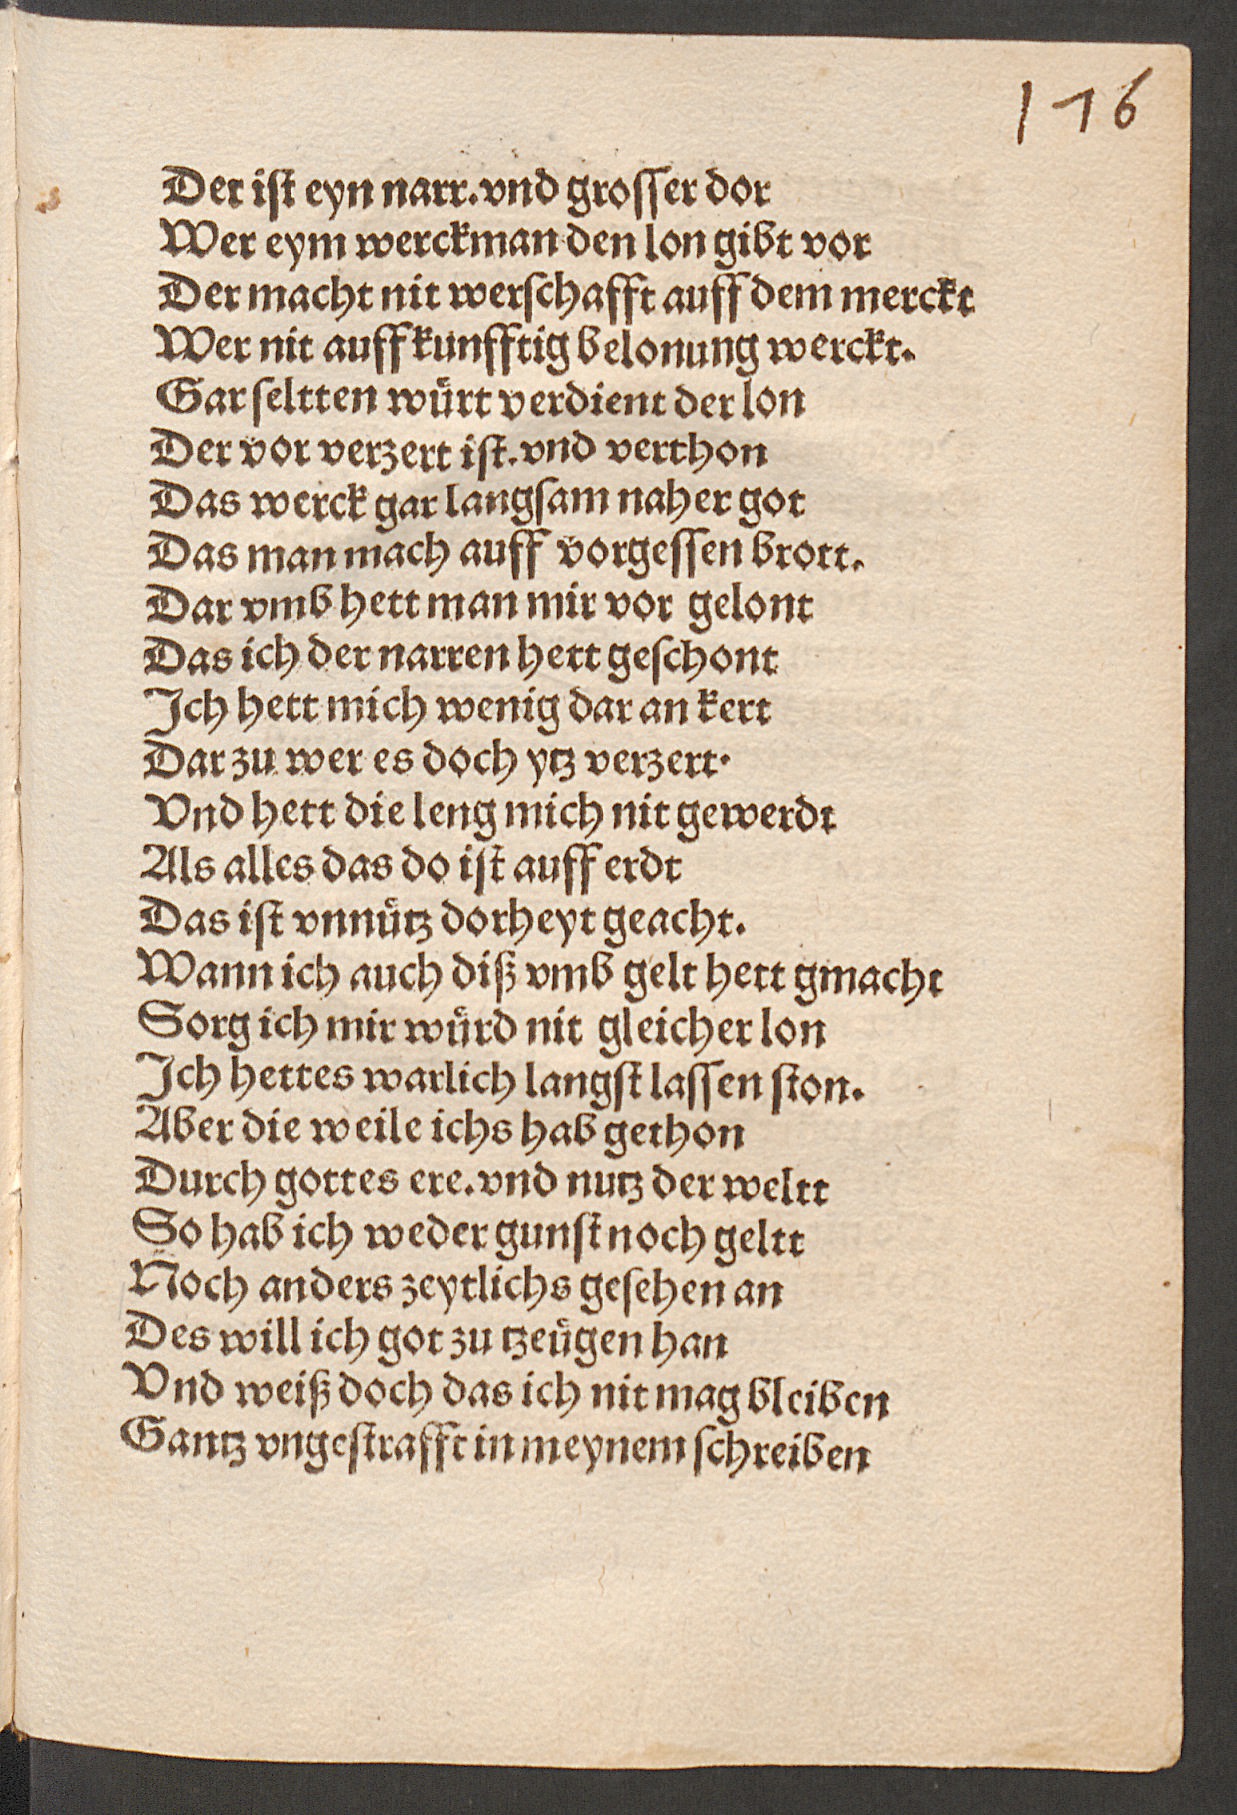 116
Der iſt eyn narr. vnd groſſer dor
Wer eym werckman den lon gibt vor
Der macht nit werſchafft auff dem merckt
Wer nit auff kunfftig belonung werckt.
Gar ſeltten wuͤrt verdient der lon
Der vor verzert iſt. vnd verthon
Das werck gar langſam naher got
Das man mach auff vorgeſſen brott.
Dar vmb hett man mir vor gelont
Das ich der narren hett geſchont
Ich hett mich wenig dar an kert
Dar zu wer es doch ytz verzert.
Vnd hett die leng mich nit gewerdt
Als alles das do iſt auff erdt
Das iſt vnnuͤtz dorheyt geacht.
Wann ich auch diß vmb gelt hett gmacht
Sorg ich mir wuͤrd nit gleicher lon
Ich hettes warlich langſt laſſen ſton.
Aber die weile ichs hab gethon
Durch gottes ere. vnd nutz der weltt
So hab ich weder gunſt noch geltt
Noch anders zeytlichs geſehen an
Des will ich got zu tzeuͤgen han
Vnd weiß doch das ich nit mag bleiben
Gantz vngeſtrafft in meynem ſchreiben